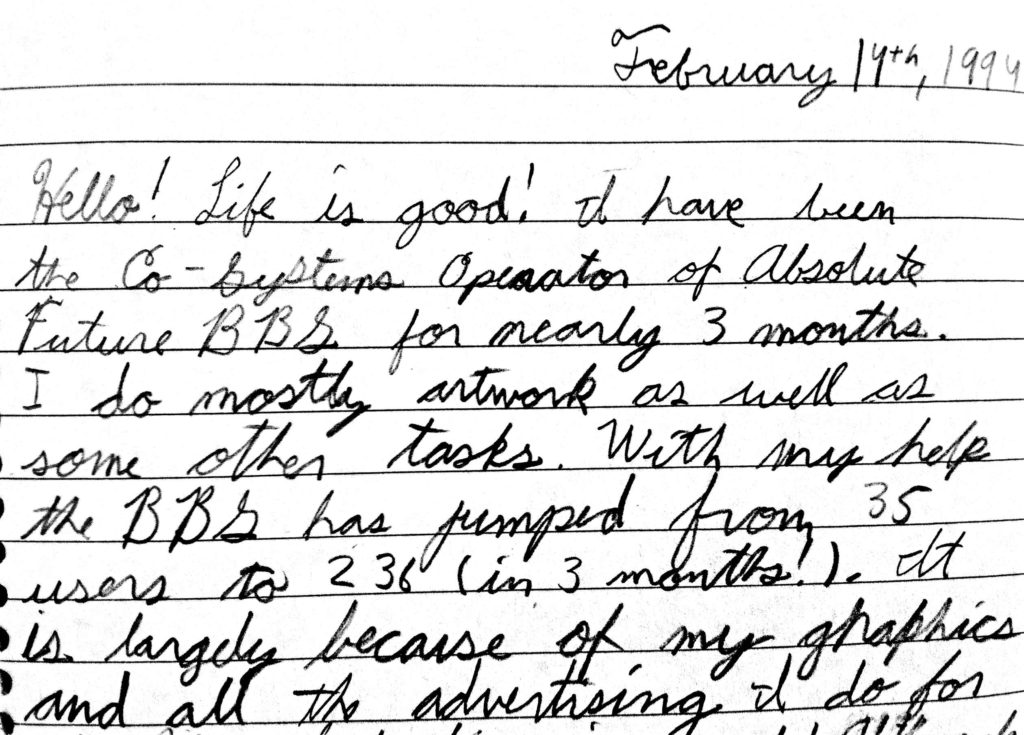 February 14th, 1994
Hello! Life is good! I have been
the Co-Systems Operator of Absolute
Future BBS for nearly 3 months.
I do mostly artwork as well as
some other tasks. With my help
the BBS has jumped from 35
users to 236 (in 3 months!). It
is largely because of my graphics
and all the advertising I do for